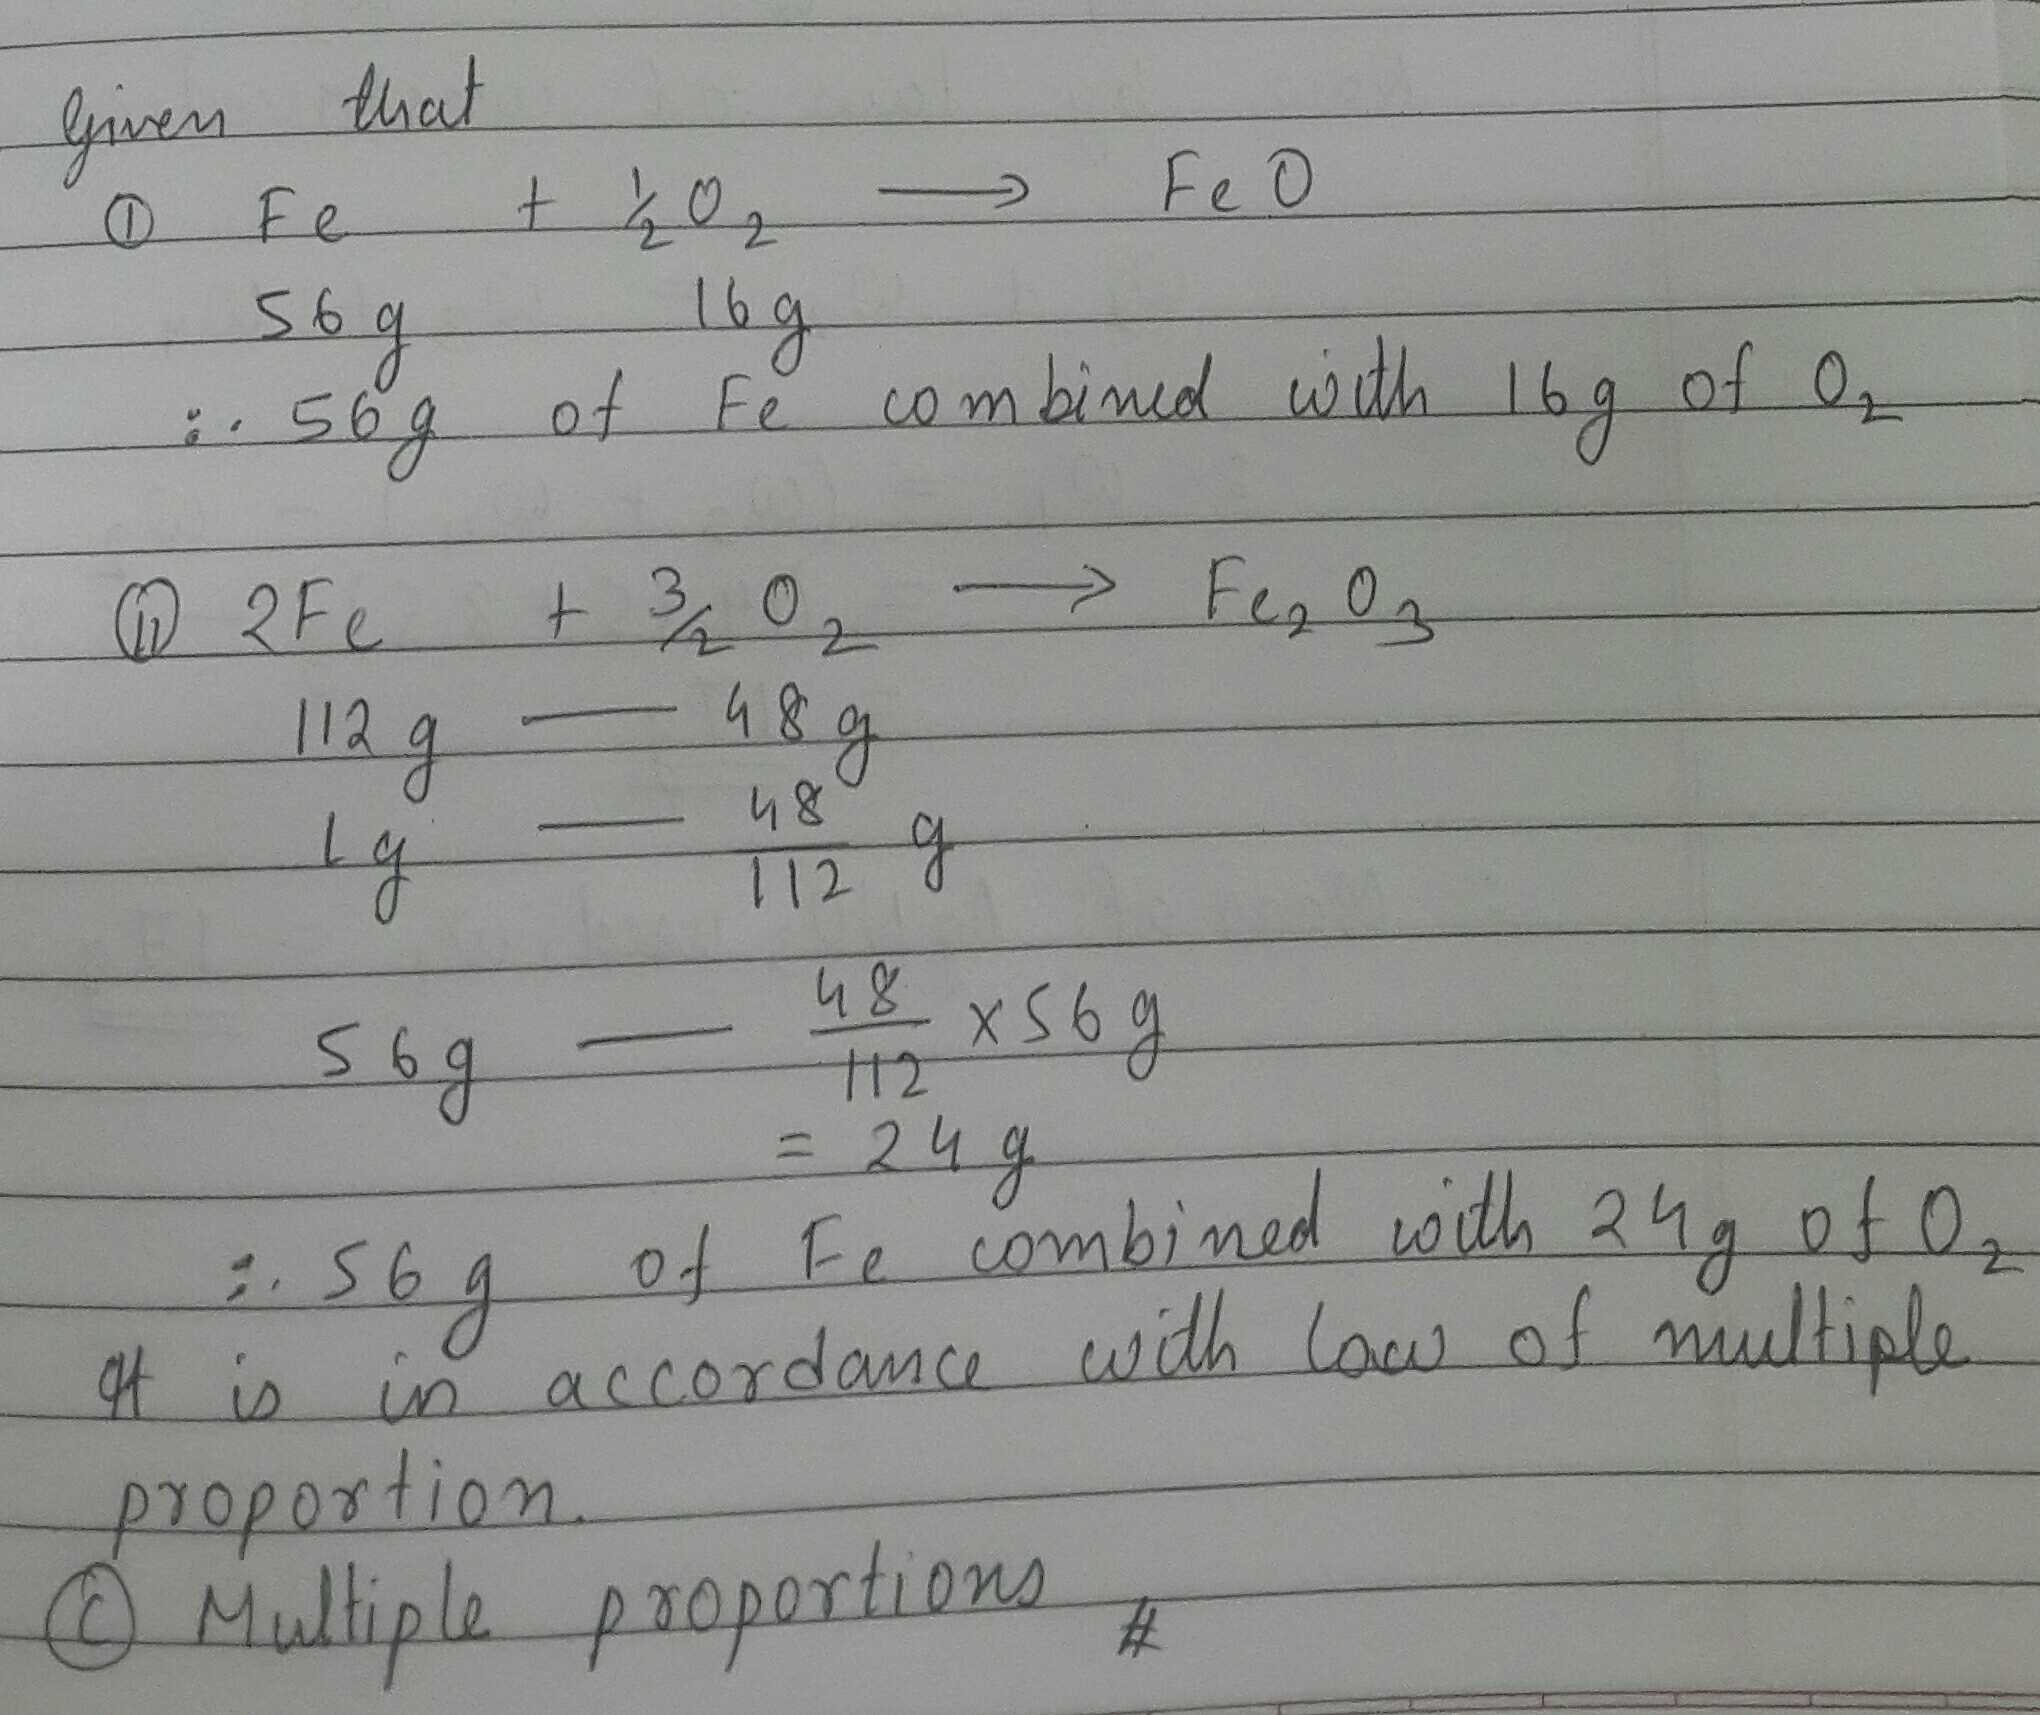 Given that
① Fe + ½ O₂ → FeO
56g 16g
∴ 56g of Fe combined with 16g of O₂
ⓘⓘ 2Fe + 3/2 O₂ → Fe₂O₃
112g — 48g
1g — 48/112 g
56g — 48/112 × 56g
= 24g
∴ 56g of Fe combined with 24g of O₂
It is in accordance with law of multiple
proportion.
Ⓒ Multiple proportions #